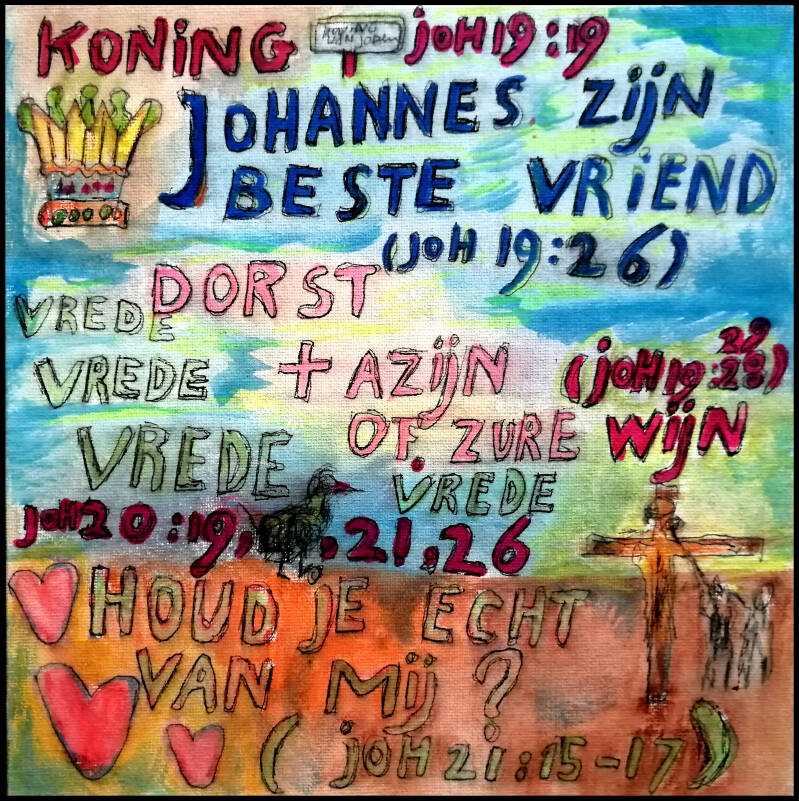 KONING JOH 19:19
JOHANNES ZIJN
BESTE VRIEND
(JOH 19:26)
DORST
VREDE
VREDE + AZIJN (JOH 19:28) 29
VREDE OF ZURE WIJN
VREDE
JOH 20:19, ,21,26
HOUD JE ECHT
VAN MIJ?
(JOH 21:15-17)